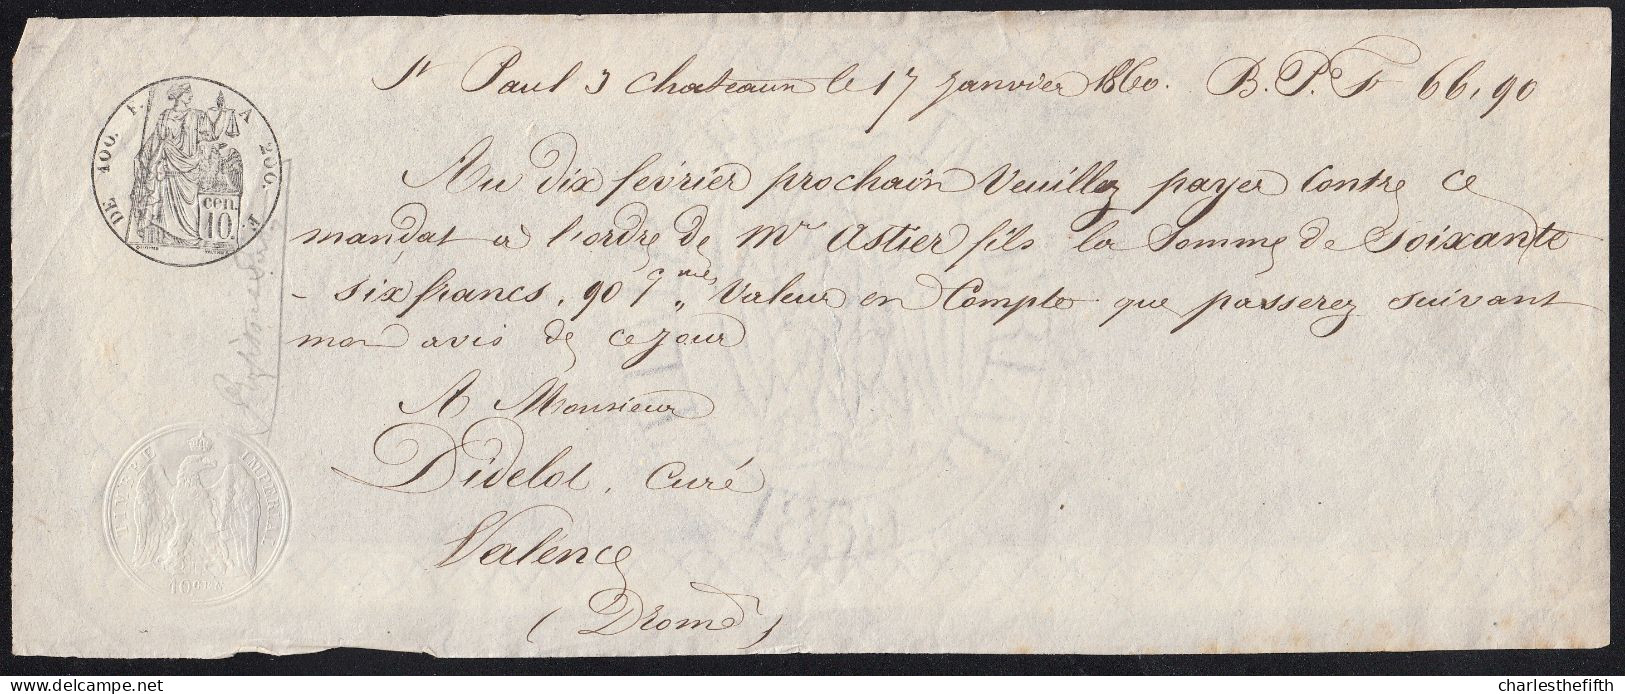 St Paul 3 Chateaux le 17 Janvier 1860. B. P. Fr 66,90
DE 100. F. A 200. F.
cen. 10.
Au dix février prochain Veuillez payer Contre ce
mandat à l'ordre de Mr Astier fils la Somme de Soixante
- six francs, 90 cmes, Valeur en Compte que passerez suivant
mon avis de ce jour
A Monsieur
Didelot, Curé
Valence
(Drome)
TIMBRE IMPERIAL
10 CEN.
delcampe.net
charlesthefifth